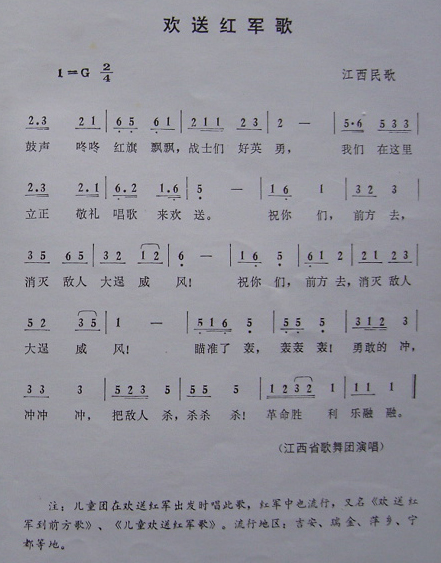 欢送红军歌
1=G 2/4
江西民歌
2.3 2 1 | 6 5 6 1 | 2 1 1 2 3 | 2 — | 5·6 5 3 3 |
鼓声 咚咚 红旗 飘飘, 战士们 好英 勇, 我们 在这里
2.3 2.1 | 6.2 1.6 | 5 — | 1 6 1 | 3 2 3 |
立正 敬礼 唱歌 来欢 送。 祝你 们, 前方 去,
3 5 6 5 | 3 2 1 2 | 6 — | 1 6 5 | 6 1 2 | 2 1 2 3 |
消灭 敌人 大逞 威 风! 祝你 们, 前方 去, 消灭 敌人
5 2 3 5 | 1 — | 5 1 6 5 | 5 6 5 | 3 1 2 3 |
大逞 威 风! 瞄准了 轰, 轰轰 轰! 勇敢的 冲,
3 3 3 | 5 2 3 5 | 5 5 5 | 1 2 3 2 | 1 1 1 |
冲冲 冲, 把敌人 杀, 杀杀 杀! 革命胜 利 乐融 融。
(江西省歌舞团演唱)
注: 儿童团在欢送红军出发时唱此歌, 红军中也流行, 又名《欢送红
军到前方歌》、《儿童欢送红军歌》。流行地区: 吉安、瑞金、萍乡、宁
都等地。